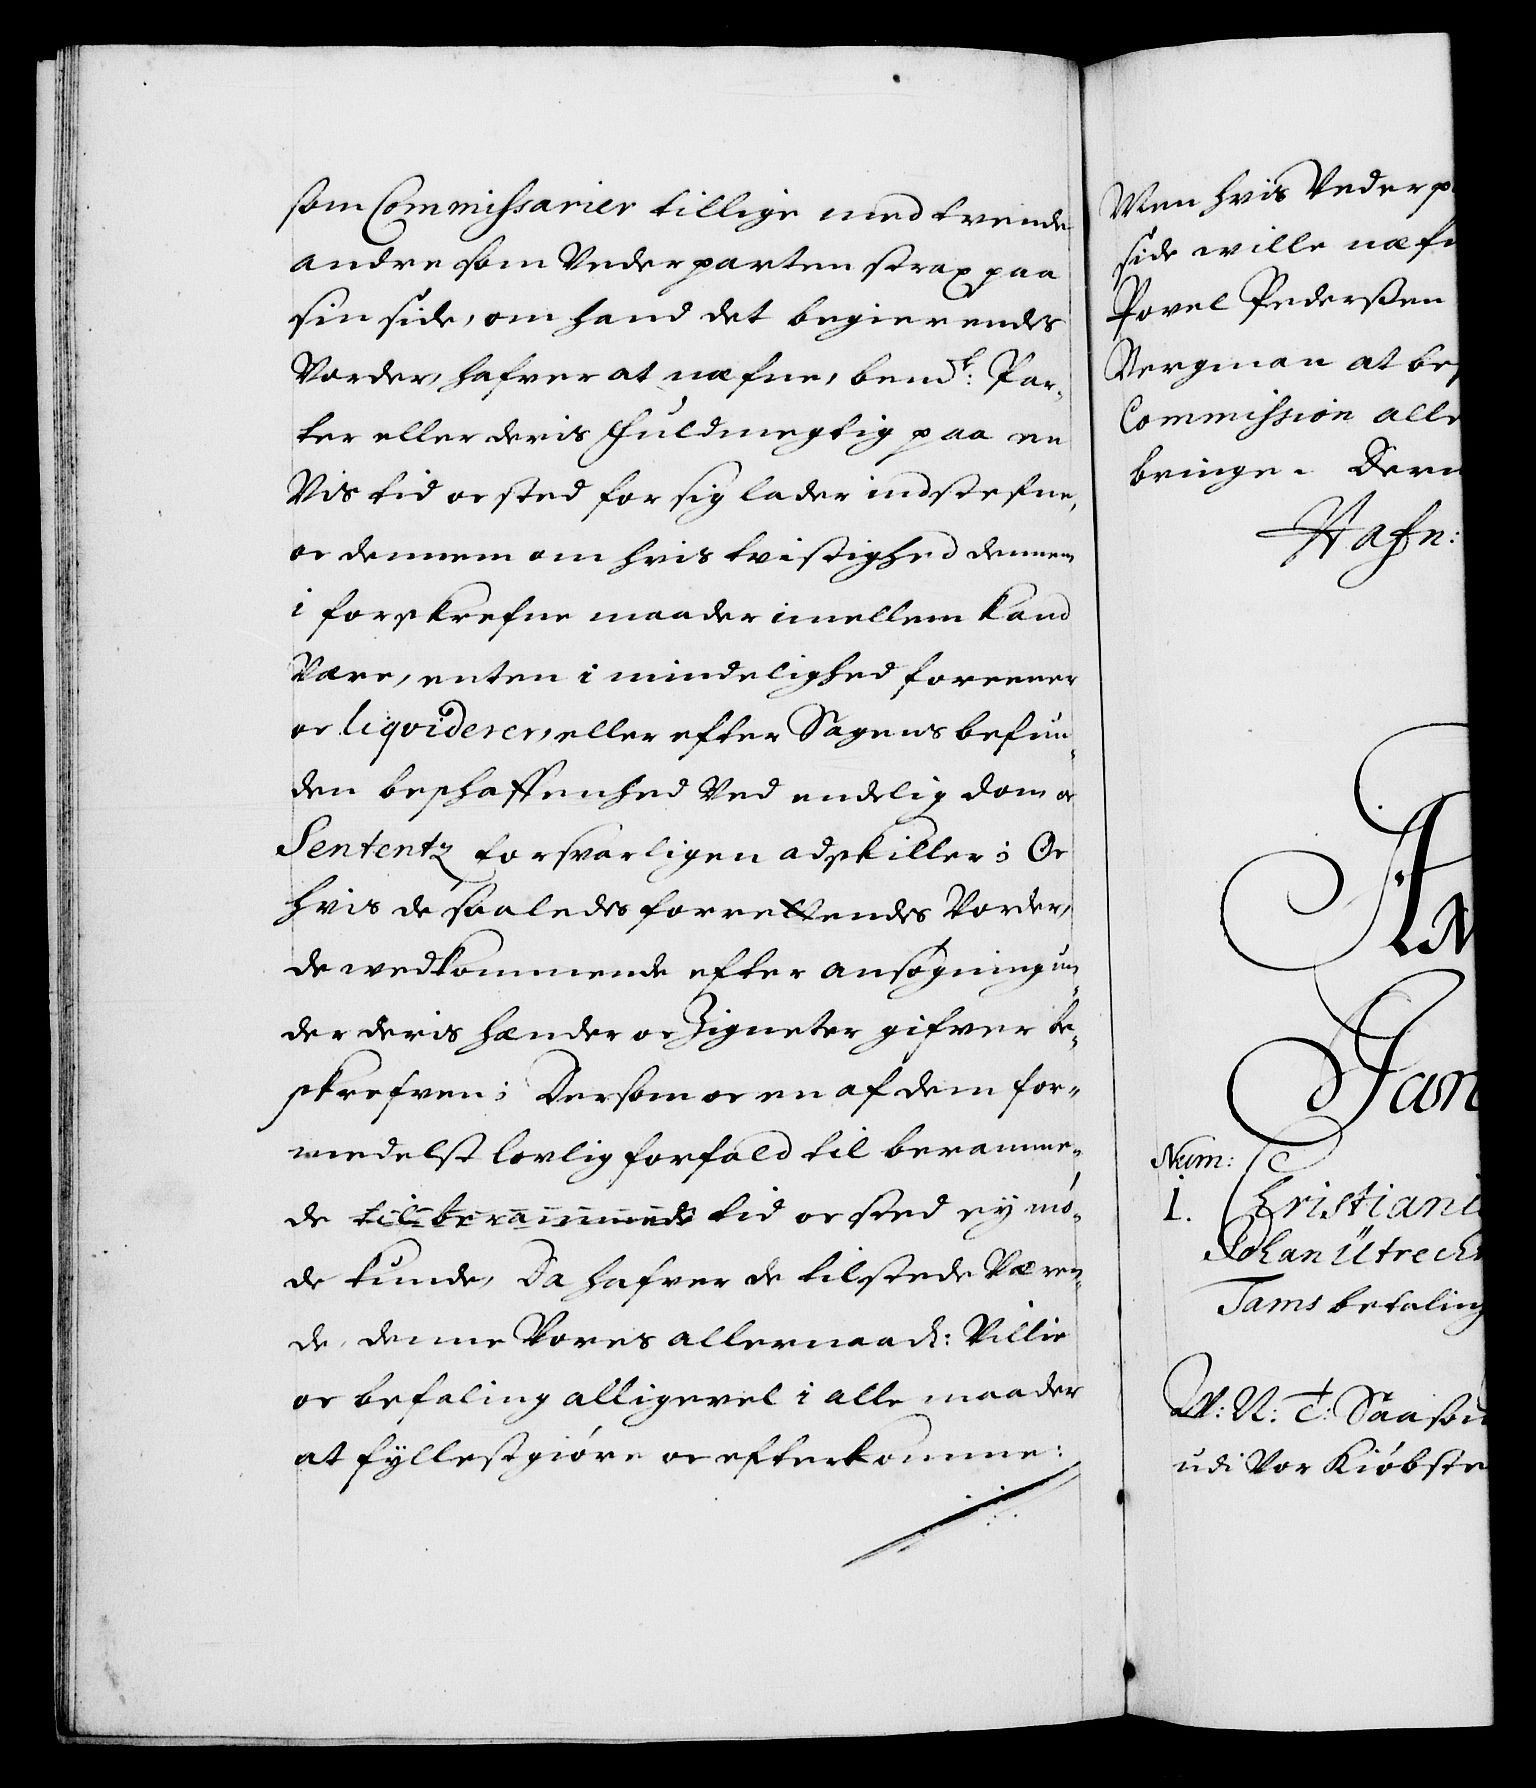 som Commissarier tillige med tvende
andre som Vederparten strax paa
sin side, om hand det begierendes
Vorder, hafver at næfne, bemte: Par-
ter eller deris Fuldmegtig paa en
Vis tid oc sted for sig lader indstefne,
oc dennem om hvis tvistighed dennem
i forskrefne maader imellem kand
Være, enten i mindelighed foreener
oc liqviderer, eller efter Sagens befun-
den beschaffenhed Ved endelig dom oc
Sententz forsvarligen adskiller; Oc
hvis de saaledes forrettendes Vorder,
de wedkommende efter ansøgning un-
der deris hænder oc Zigneter gifver be-
skrefven; Dersom oc en af dem for-
medelst lovlig forfald til beramme-
de til berammede tid oc sted ey mø-
de kunde, Da hafver de tilstede Væren-
de, denne Vores allernaad: Villie
oc befaling alligevel i alle maader
at fyllestgiøre oc efterkomme:
Men hvis Vederp
side wille næfn
Povel Pederssen
Bergman at be
Commission alle
bringe. Der
Hafn:
An
Jan
Num:
1. Christiani
Johan Utrech
Tams betaling
W: N: T: Saasom
udi Vor Kiøbste